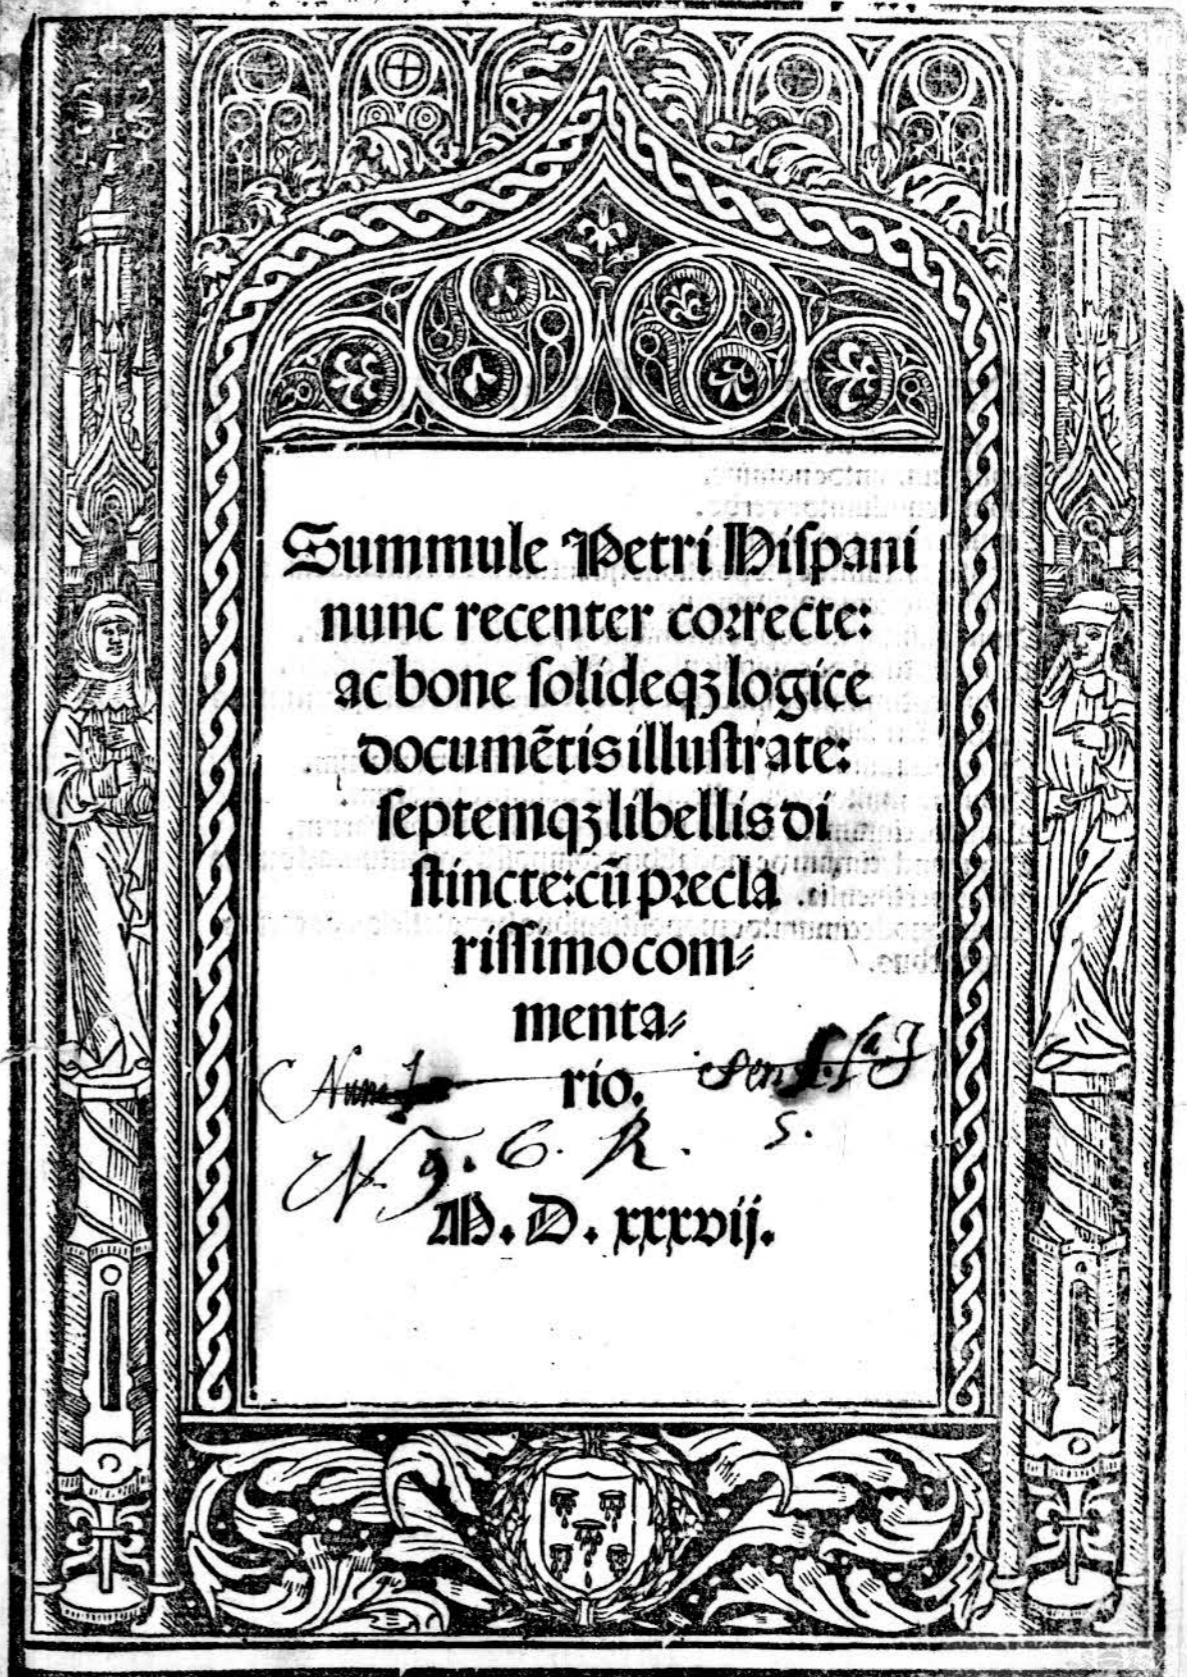 Summule Petri Hiſpani
nunc recenter correcte:
ac bone ſolideqꝫ logice
documẽtis illuſtrate:
ſeptemqꝫ libellis di
ſtincte: cũ precla
riſſimo com⸗
menta⸗
rio.
s.
N 9. 6. R.
M. D. xxxvij.